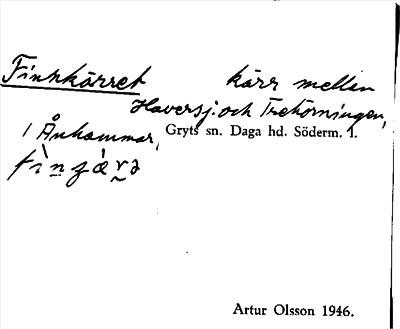 Finnkärret kärr mellan
Haversj. och Trehörningen,
i Ånhammar, Gryts sn. Daga hd. Söderm. l.
Artur Olsson 1946.